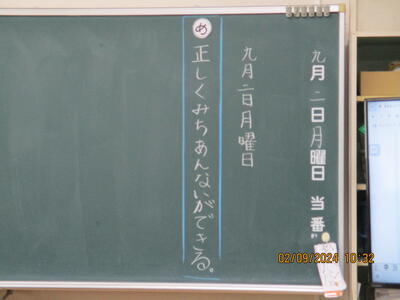 九月二日月曜日 当番
九月二日月曜日
め 正しくみちあんないができる。
02/09/2024 10:32